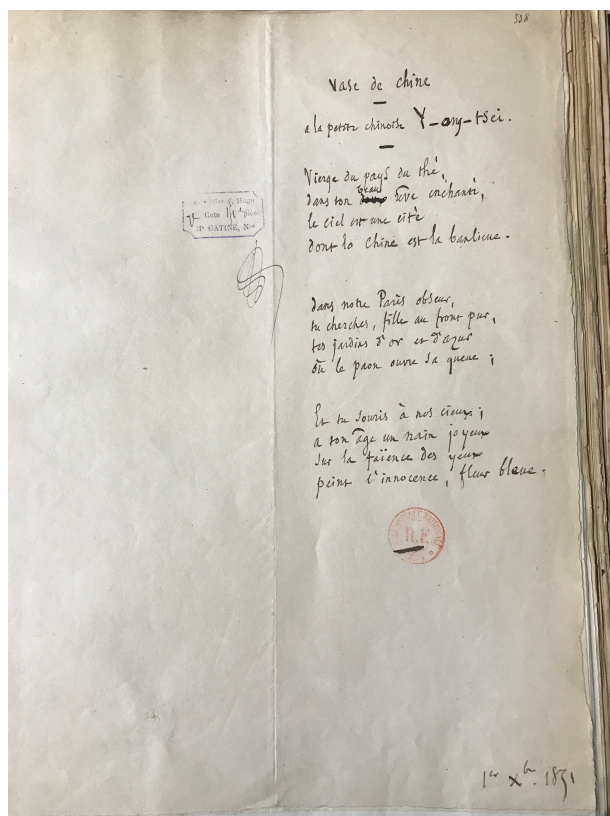 538
Vase de chine
a la petite chinoise Y-ang-tsei.
Vierge du pays du thé,
dans ton beau rêve enchanté,
le ciel est une cité
dont la Chine est la banlieue.
dans notre Paris obscur,
tu cherches, fille au front pur,
tes jardins d'or et d'azur
où le paon ouvre sa queue ;
Et tu souris à nos cieux ;
a ton âge un nain joyeux
sur la faïence des yeux
peint l'innocence, fleur bleue.
V. Hugo
Cote
Me GATINE, Nre
R.F.
1er Xbre. 1851